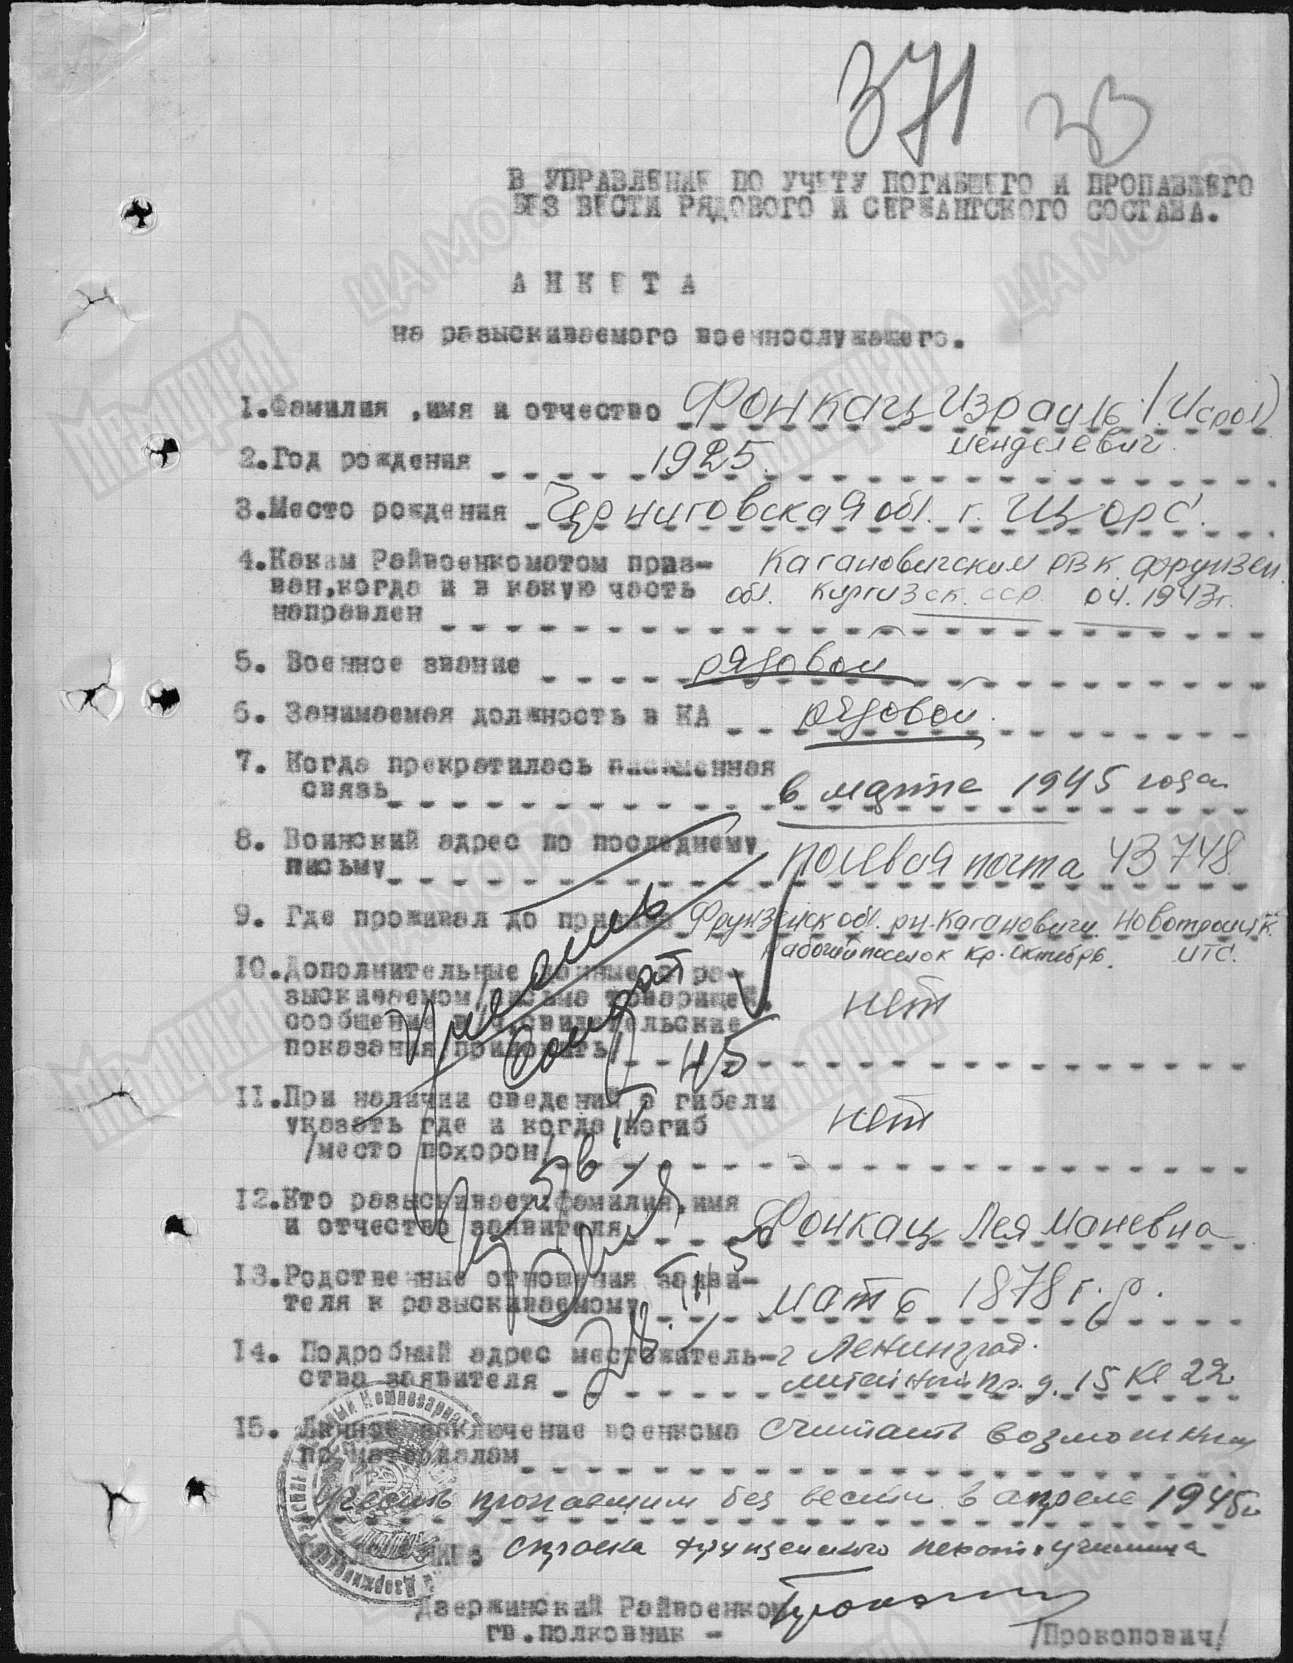 371 33
В УПРАВЛЕНИЕ ПО УЧЕТУ ПОГИБШЕГО И ПРОПАВШЕГО
БЕЗ ВЕСТИ РЯДОВОГО И СЕРЖАНТСКОГО СОСТАВА.
АНКЕТА
на разыскиваемого военнослужащего.
1.Фамилия ,имя и отчество Фонкац Израиль /Исрол/
Менделевич
2.Год рождения 1925
3.Место рождения Черниговская обл. г. Щорс
4.Каким Райвоенкоматом приз- Кагановичским РВК Фрунзен.
ван,когда и в какую часть обл. Киргизск. сср. 04.1943г.
направлен
5. Военное звание рядовой
6. Занимаемая должность в КА рядовой
7. Когда прекратилась письменная
связь в марте 1945 года
8. Воинский адрес по последнему
письму полевая почта 43748
9. Где проживал до призыва Фрунзенск обл. рн. Кагановичи Новотроицк
рабочий поселок Кр. Октябрь. ИТС.
10.Дополнительные данные о ра-
зыскиваемом/письма товарищей,
сообщение в/ч,свидетельские нет
показания приложить/
11.При наличии сведений о гибели
указать где и когда погиб нет
/место похорон/
12.Кто разыскивает:фамилия,имя
и отчество заявителя Фонкац Лея Маневна
13.Родственные отношения заяви-
теля к разыскиваемому мать 1878 г.р.
14. Подробный адрес местожитель- г Ленинград.
ства заявителя Литейный пр. д. 15 кв 22
15. Личное заключение военкома считать возможным
по материалам
учесть пропавшим без вести в апреле 1945г
справка Фрунзенского пехотн. училища
Дзержинский Райвоенком
гв.полковник - /Прокопович/
солдат
45
ЦАМО РФ
Мемориал